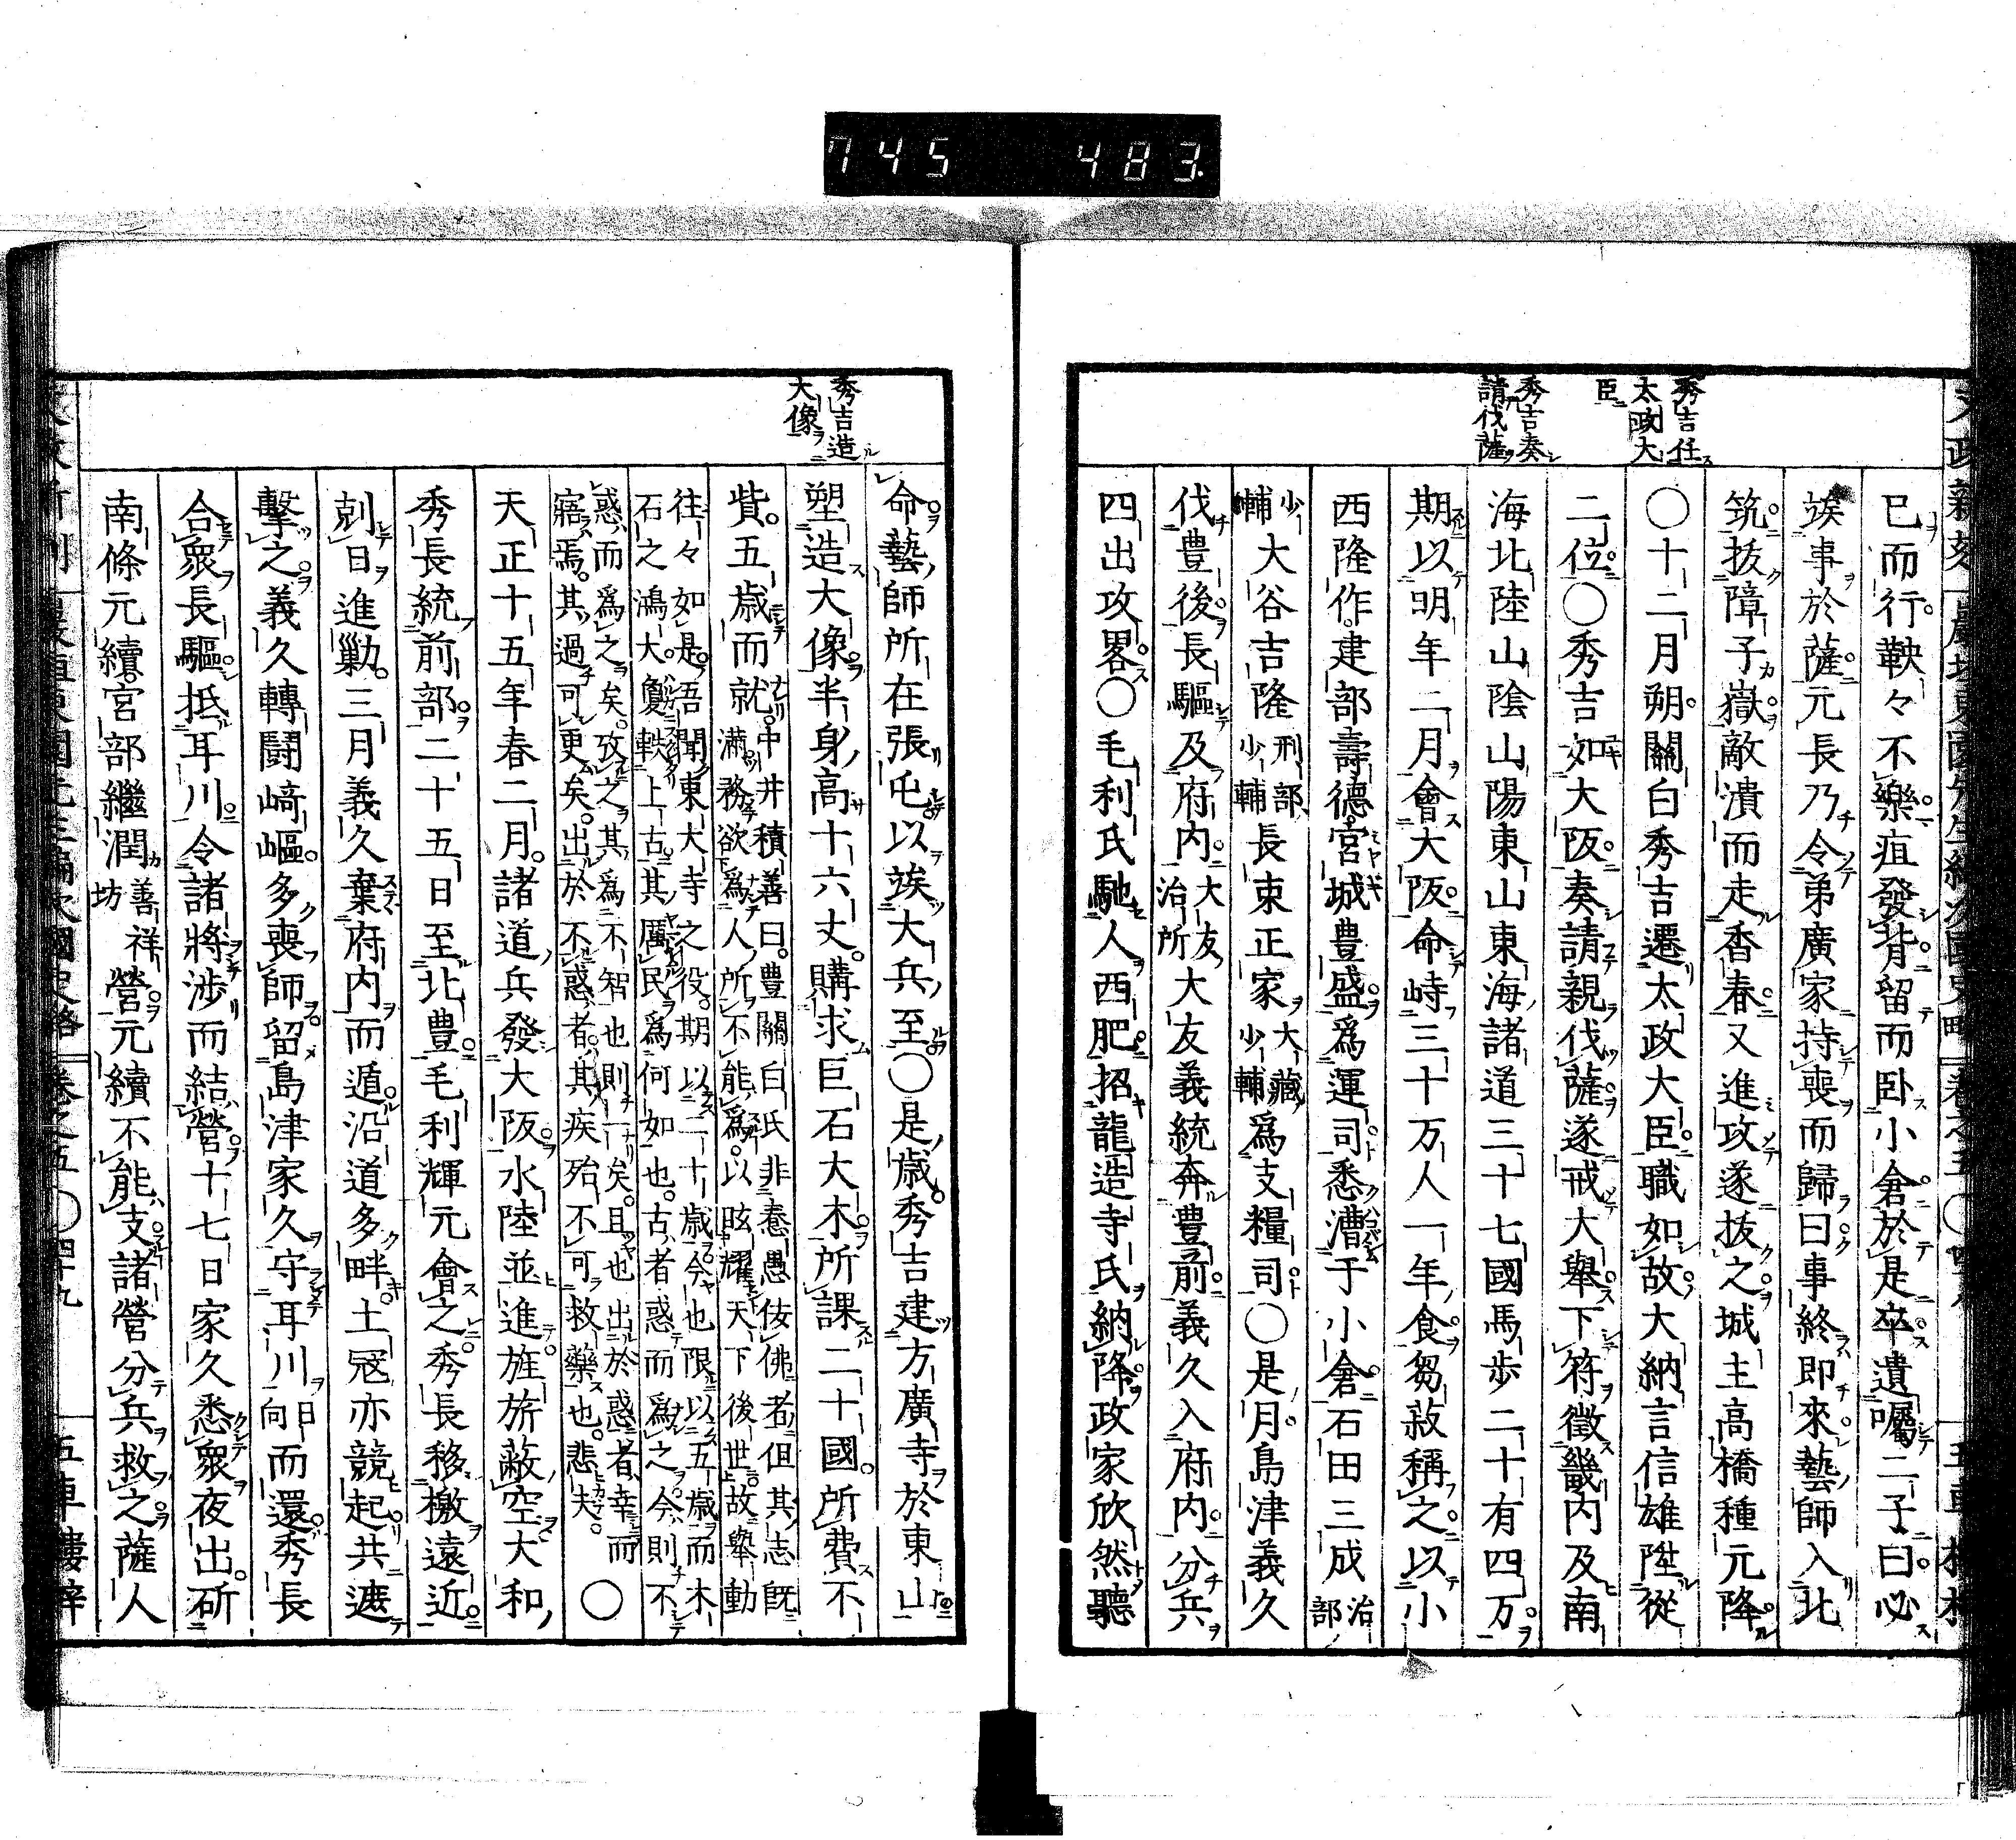 745 483
秀吉任
太政大
臣
秀吉奏
請伐薩
已而行鞅々不樂疽發背留而卧小倉於是卒遺囑二子曰必
竢事於薩元長乃令弟廣家持喪而歸曰事終即來藝師入北
筑拔障子嶽敵潰而走香春又進攻遂拔之城主高橋種元降
〇十二月朔關白秀吉遷太政大臣職如故大納言信雄陞從
二位〇秀吉如大阪奏請親伐薩遂戒大舉下符徵畿內及南
海北陸山陰山陽東山東海諸道三十七國馬步二十有四万
期以明年二月會大阪命峙三十万人一年食芻菽稱之以小
西隆作建部壽德宮城豊盛爲運司悉漕于小倉石田三成治部
少輔大谷吉隆刑部少輔長束正家大藏少輔爲支糧司〇是月島津義久
伐豊後長驅及府内大友所治大友義統奔豊前義久入府内分兵
四出攻畧〇毛利氏馳人西肥招龍造寺氏納降政家欣然聽
秀吉造
大像
命藝師所在張屯以竢大兵至〇是歳秀吉建方廣寺於東山
塑造大像半身高十六丈購求巨石大木所課二十國所費不
貲五歳而就中井積善曰豊關白氏非惷愚佞佛者但其志既
滿務欲爲人所不能爲以眩耀天下後世故舉動
往々如是吾聞東大寺之役期以二十歳今也限以五歳而木
石之鴻大敻軼上古其厲民爲何如也古者惑而爲之今則不
惑而爲之矣攷之其爲不智也則一矣且也出於惑者幸而
寤焉其過可更矣出於不惑者其疾殆不可救藥也悲夫〇
天正十五年春二月諸道兵發大阪水陸並進旌旂蔽空大和
秀長統前部二十五日至北豊毛利輝元會之秀長移檄遠近
剋日進勦三月義久棄府内而遁沿道多畔土冦亦競起共遮
擊之義久轉鬪﨑嶇多喪師留島津家久守耳川日向而還秀長
合衆長驅抵耳川令諸將涉而結營十七日家久悉衆夜出斫
南條元續宮部繼潤善祥坊營元續不能支諸營分兵救之薩人